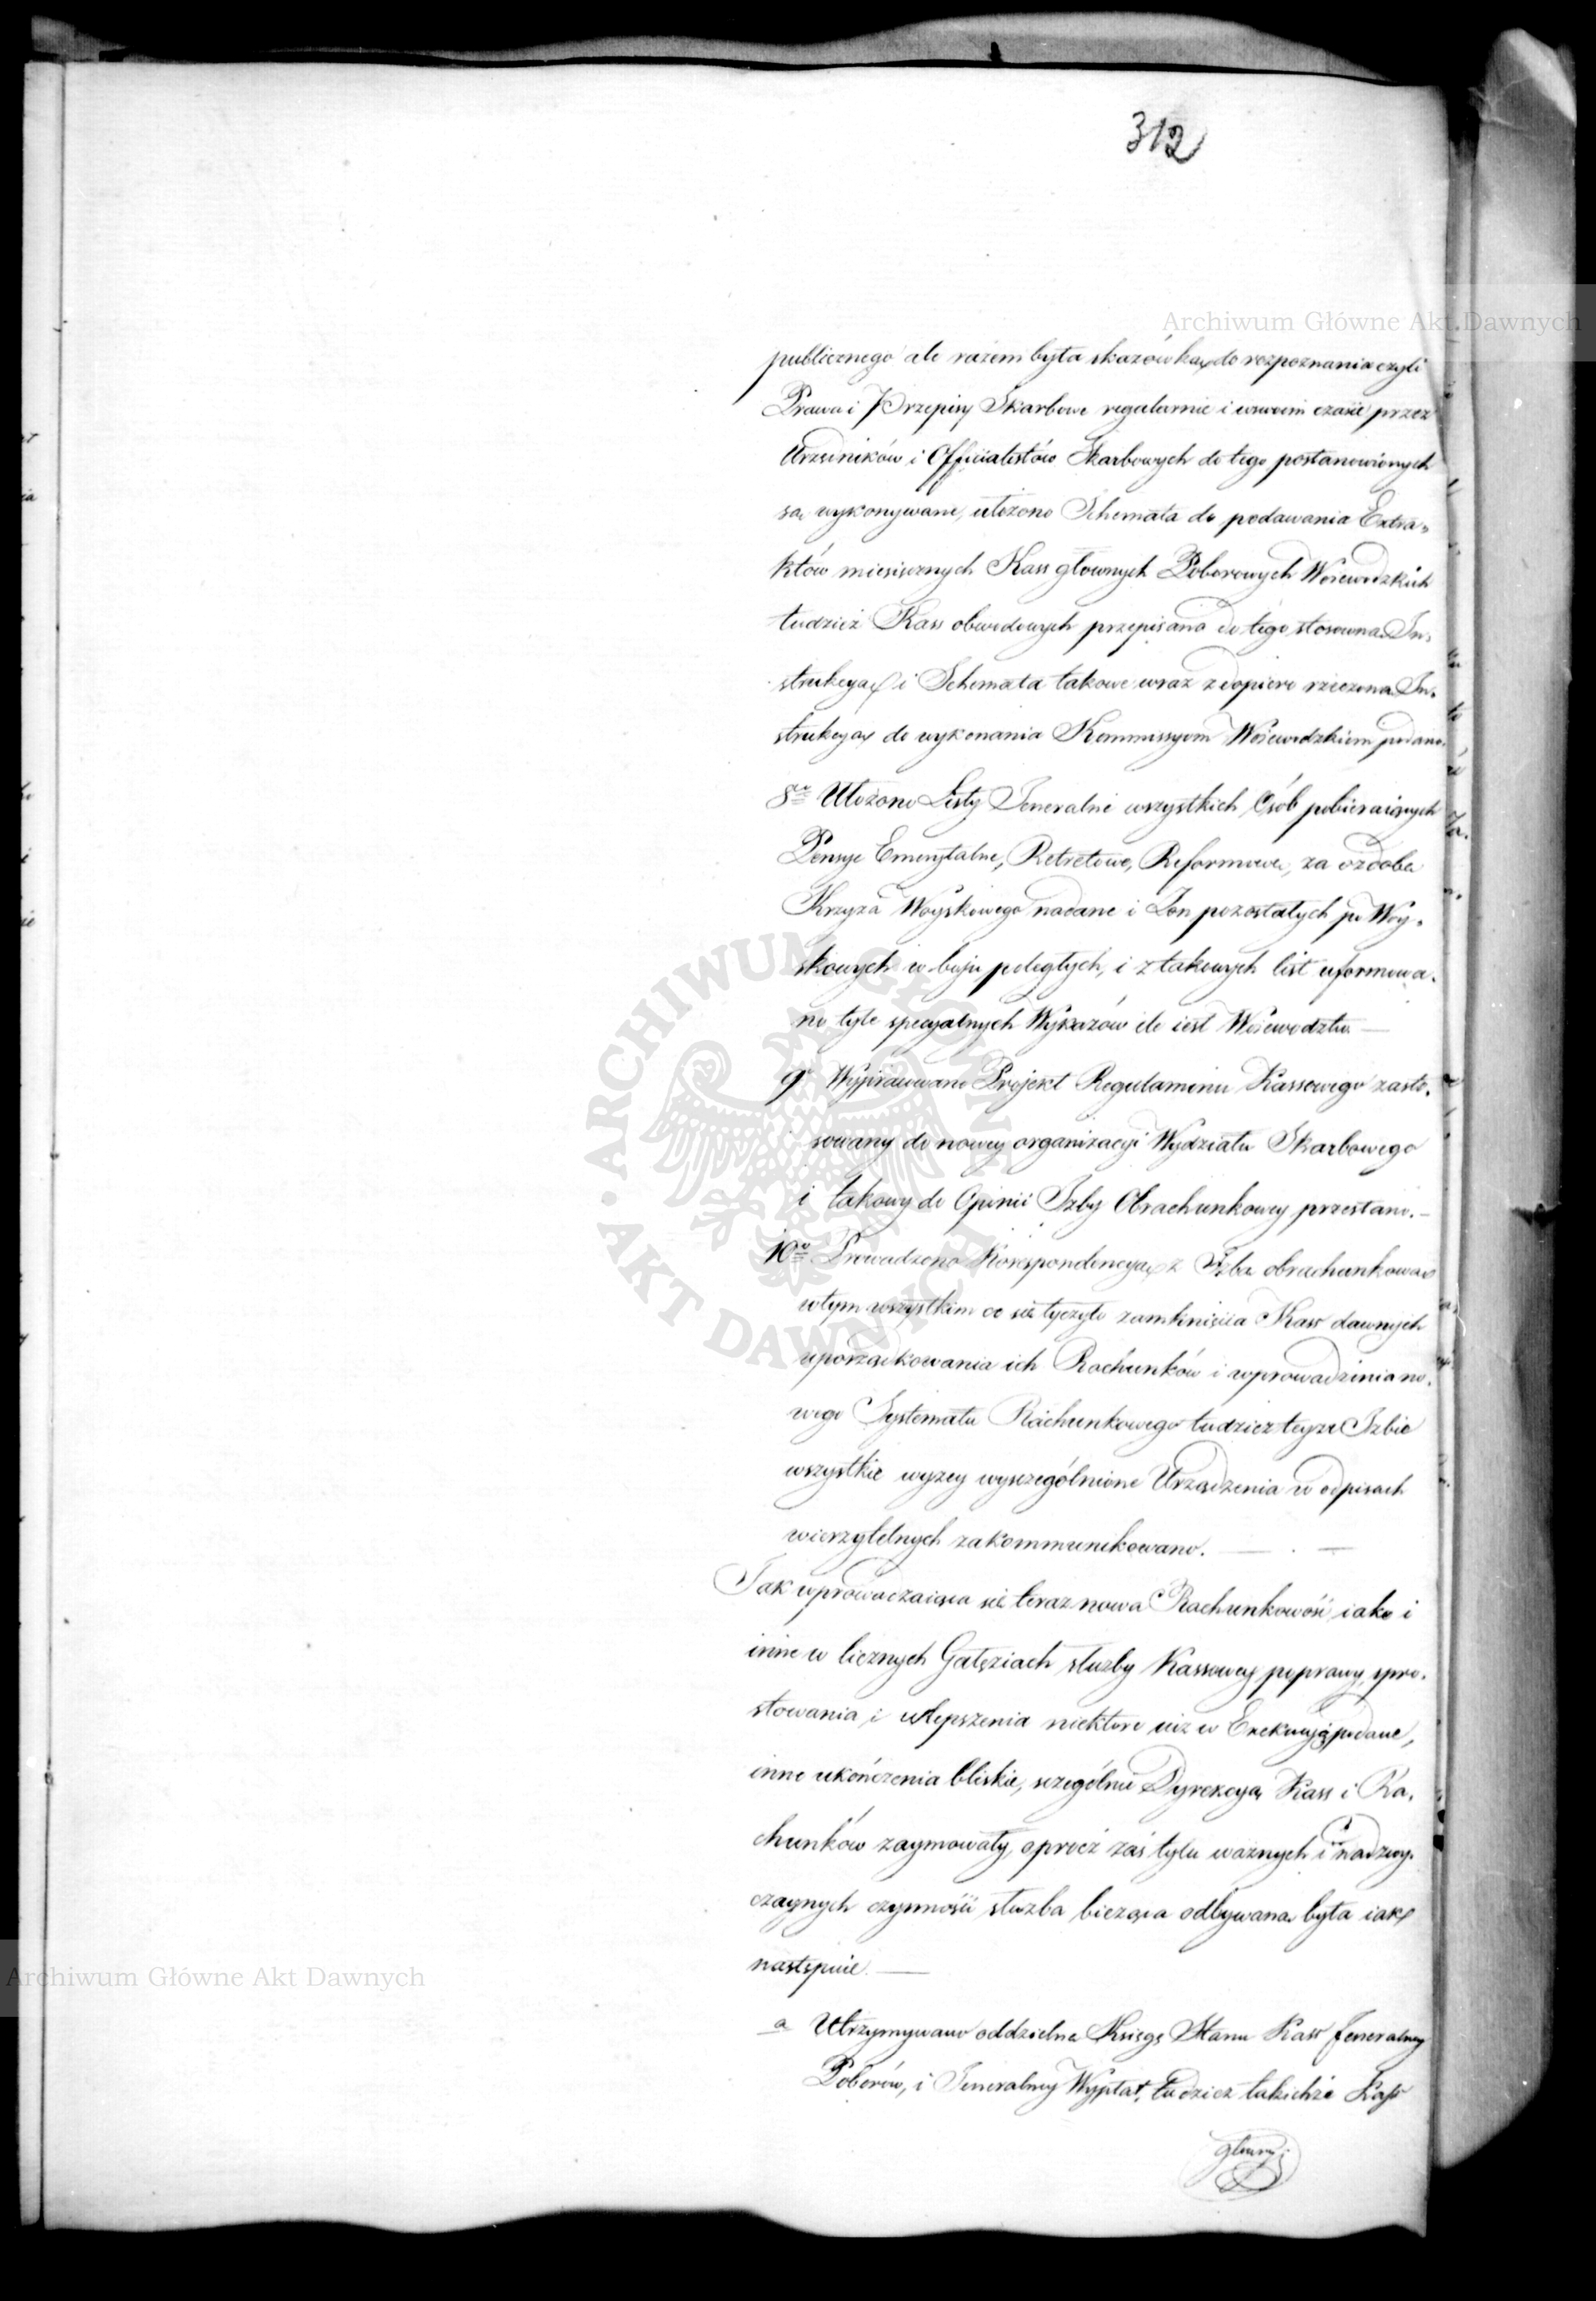 312
Archiwum Główne Akt Dawnych
publicznego ale razem była skazówką do rozpoznania czyli
Prawa i Przepisy Skarbowe regularnie i w swoim czasie przez
Urzędników i Officialistów Skarbowych do tego postanowionych
są wykonywane, ułożono Schemata do podawania Extra-
któw miesięcznych Kass głównych Poborowych Woiewodzkich
tudzież Kass obwodowych przepisano do tego stosowną In-
strukcyą i Schemata takowe wraz z dopiero rzeczoną In-
strukcyą do wykonania Kommissyom Woiewodzkim podano.
8vo Ułożono Listy Jeneralne wszystkich Osób pobieraiących
Pensye Emerytalne, Retretowe, Reformowe, za ozdobę
Krzyża Woyskowego nadane i Żon pozostałych po Woy-
skowych w boju poległych, i z takowych list uformowa-
no tyle specyalnych Wykazów ile iest Woiewodztw. —
9o Wypracowano Projekt Regulaminu Kassowego zasto-
sowany do nowey organizacyi Wydziału Skarbowego
i takowy do Opinii Izby Obrachunkowey przesłano. —
10mo Prowadzono Korespondencyą z Izbą obrachunkową
w tym wszystkim co się tyczyło zamknięcia Kass dawnych
uporządkowania ich Rachunków i wprowadzenia no-
wego Systematu Rachunkowego tudzież teyże Izbie
wszystkie wyżey wyszczególnione Urządzenia w odpisach
wierzytelnych zakommunikowano. —
Jak wprowadzaiąca się teraz nowa Rachunkowość iako i
inne w licznych Gałęziach służby Kassowey poprawy, spro-
stowania i ulepszenia niektóre iuż w Exekucyą podane,
inne ukończenia bliskie, szczególnie Dyrekcyą Kass i Ra-
chunków zaymowały, oprócz zaś tylu ważnych i nadzwy-
czaynych czynności służba bieżąca odbywana była iak
następuie. —
Archiwum Główne Akt Dawnych
a Utrzymywano oddzielne Księgi Stanu Kass Jeneralney
Poborów, i Jeneralney Wypłat, tudzież takichże Kass
główny:
ARCHIWUM GŁÓWNE • AKT DAWNYCH •